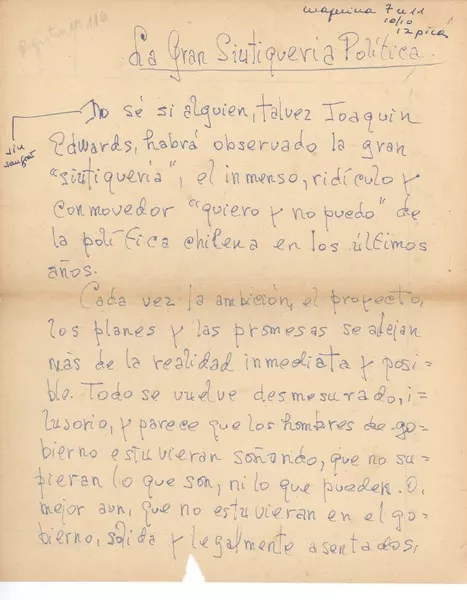 maquina 7 u 11
10/10
12 pica
Registro Nº 116
La Gran Siutiqueria Política.
sin
sangrar
No sé si alguien, talvez Joaquin
Edwards, habrá observado la gran
"siutiqueria", el inmenso, ridículo y
conmovedor "quiero y no puedo" de
la política chilena en los últimos
años.
Cada vez la ambición, el proyecto,
los planes y las promesas se alejan
más de la realidad inmediata y posi-
ble. Todo se vuelve desmesurado, i-
lusorio, y parece que los hombres de go-
bierno estuvieran soñando, que no su-
pieran lo que son, ni lo que pueden. O,
mejor aun, que no estuvieran en el go-
bierno, solida y legalmente asentados,